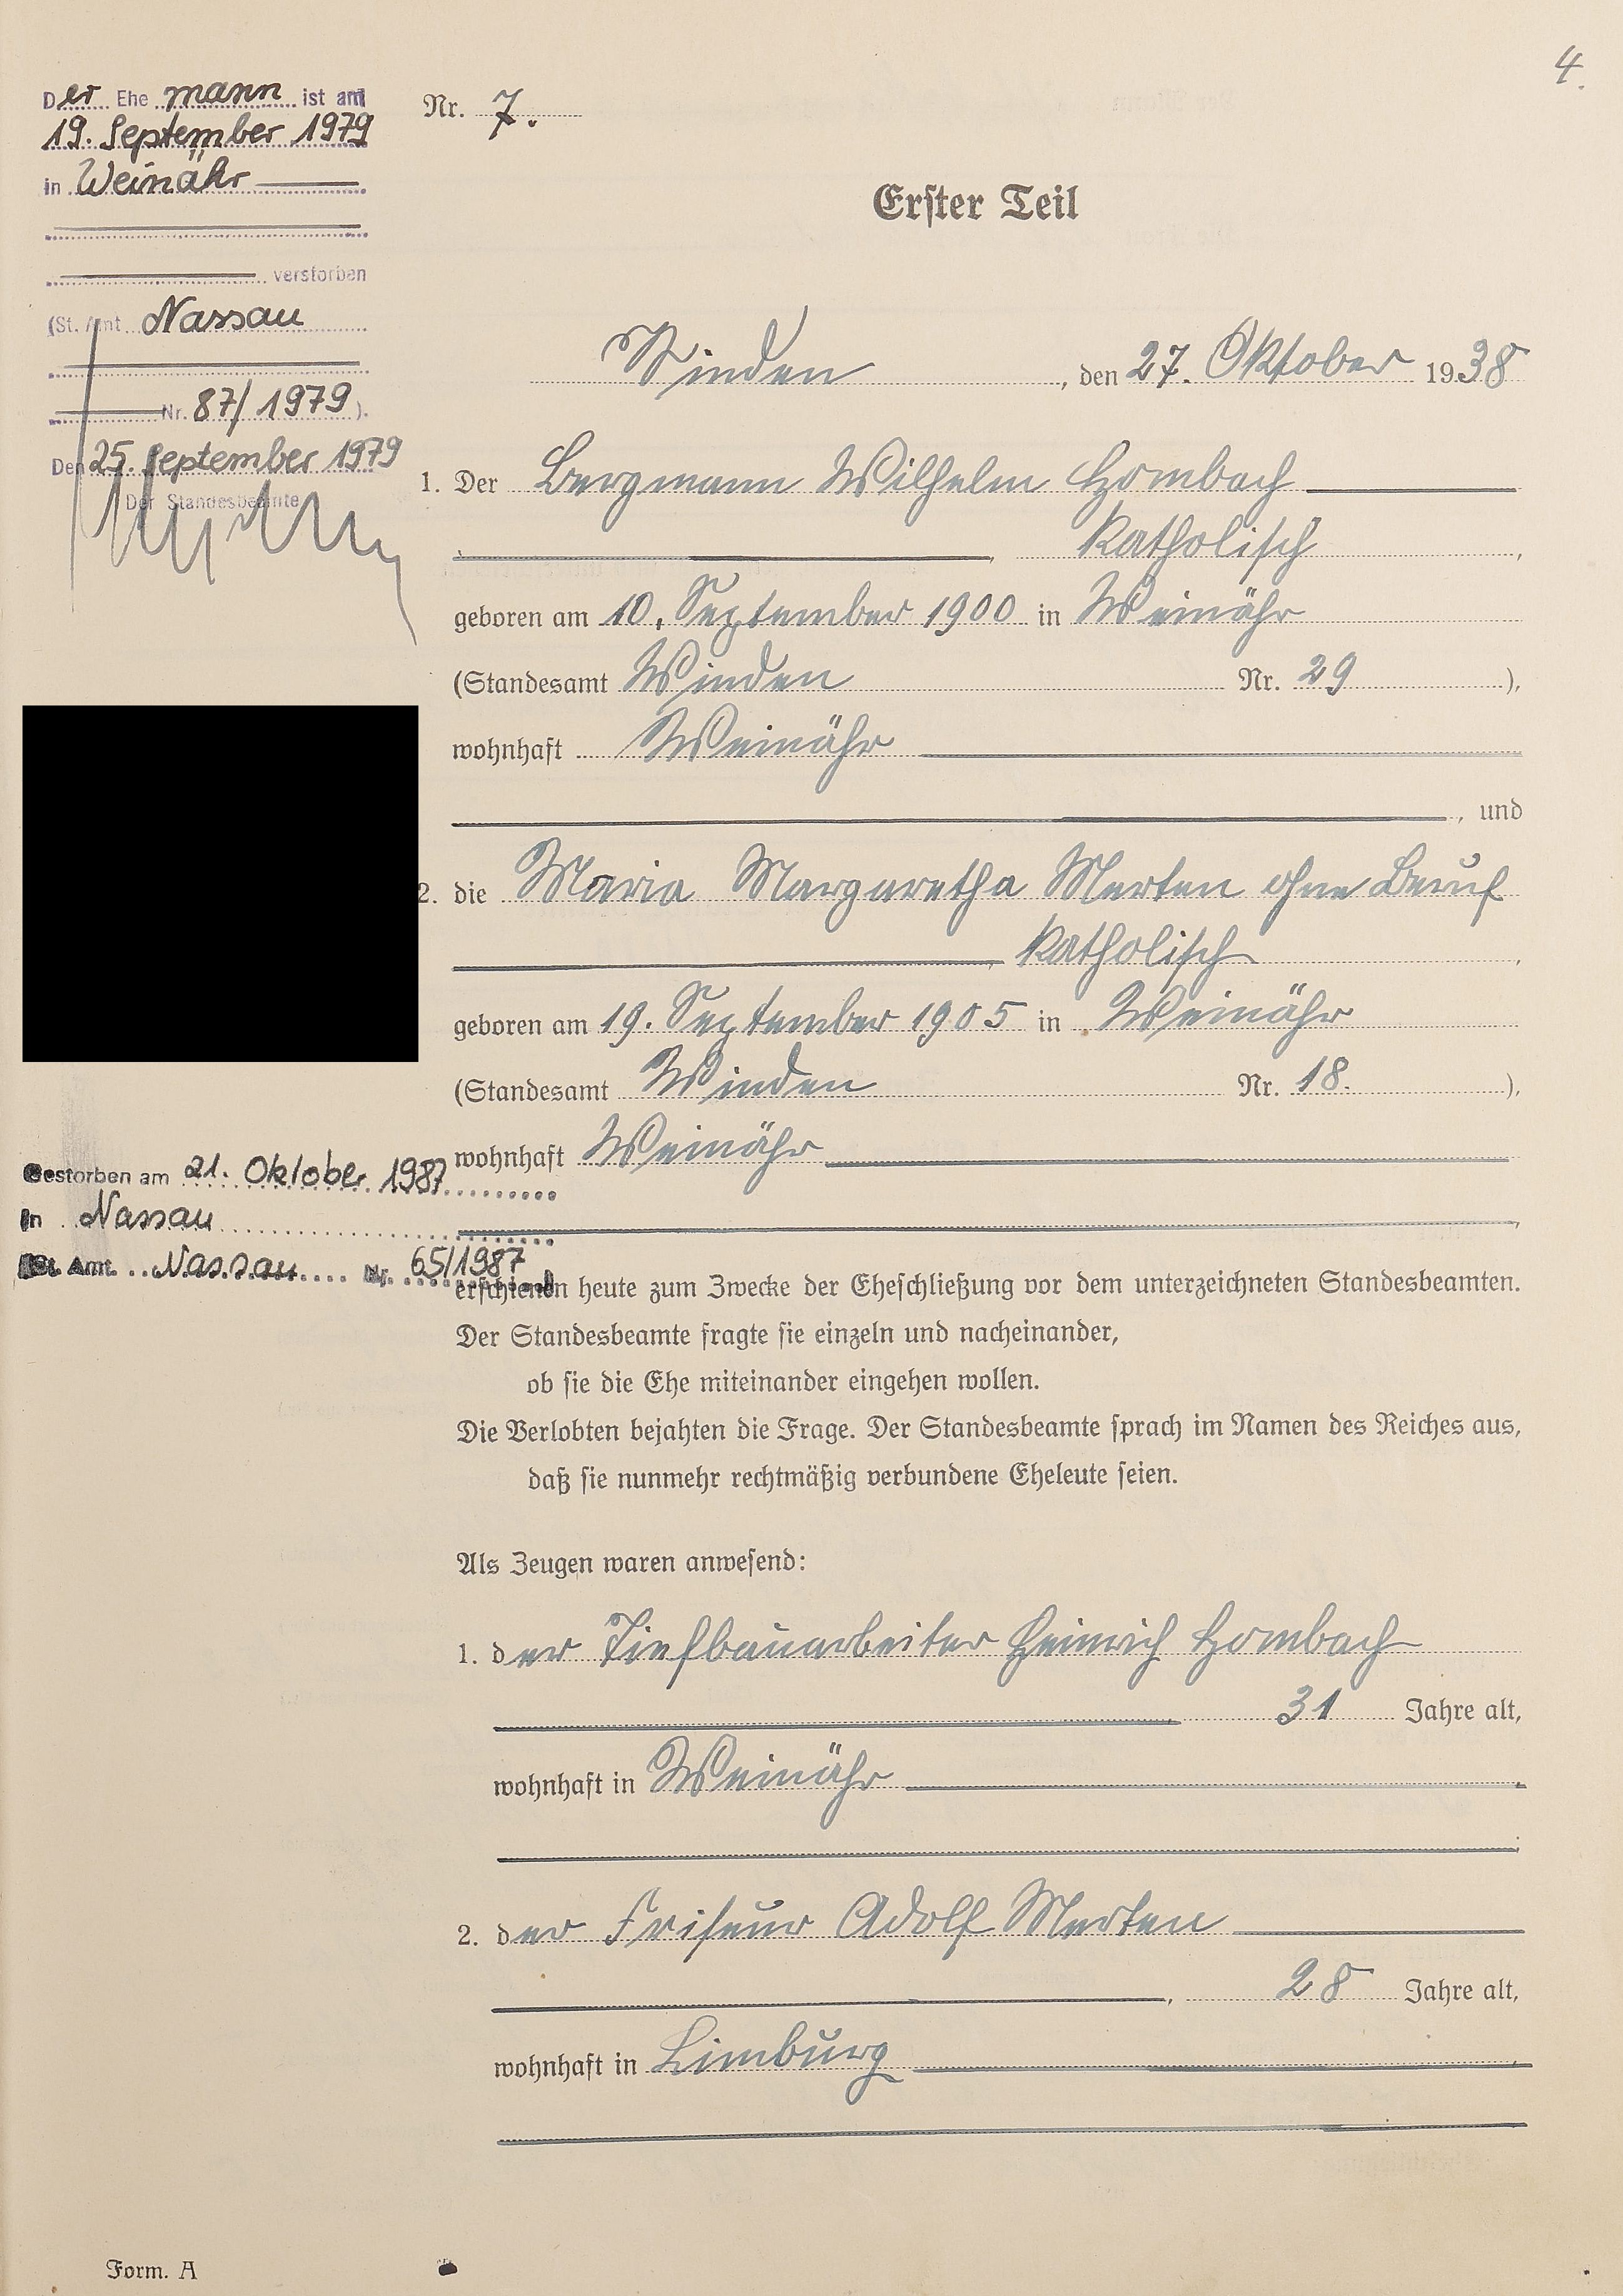 4.
Der Ehe mann ist am
19. September 1979
in Weinähr
verstorben
(St. Amt Nassau
Nr. 87/1979).
Den 25. September 1979
Der Standesbeamte
Nr. 7.
Erster Teil
Winden, den 27. Oktober 1938
1. Der Bergmann Wilhelm Hombach
, katholisch,
geboren am 10. September 1900 in Weinähr
(Standesamt Winden Nr. 29),
wohnhaft Weinähr
, und
2. die Maria Margaretha Merten ohne Beruf
, katholisch,
geboren am 19. September 1905 in Weinähr
(Standesamt Winden Nr. 18.),
wohnhaft Weinähr
Gestorben am 21. Oktober 1987
in Nassau
St. Amt Nassau Nr. 65/1987
erschienen heute zum Zwecke der Eheschließung vor dem unterzeichneten Standesbeamten.
Der Standesbeamte fragte sie einzeln und nacheinander,
ob sie die Ehe miteinander eingehen wollen.
Die Verlobten bejahten die Frage. Der Standesbeamte sprach im Namen des Reiches aus,
daß sie nunmehr rechtmäßig verbundene Eheleute seien.
Als Zeugen waren anwesend:
1. der Tiefbauarbeiter Heinrich Hombach
, 31 Jahre alt,
wohnhaft in Weinähr
2. der Friseur Adolf Merten
, 28 Jahre alt,
wohnhaft in Limburg
Form. A